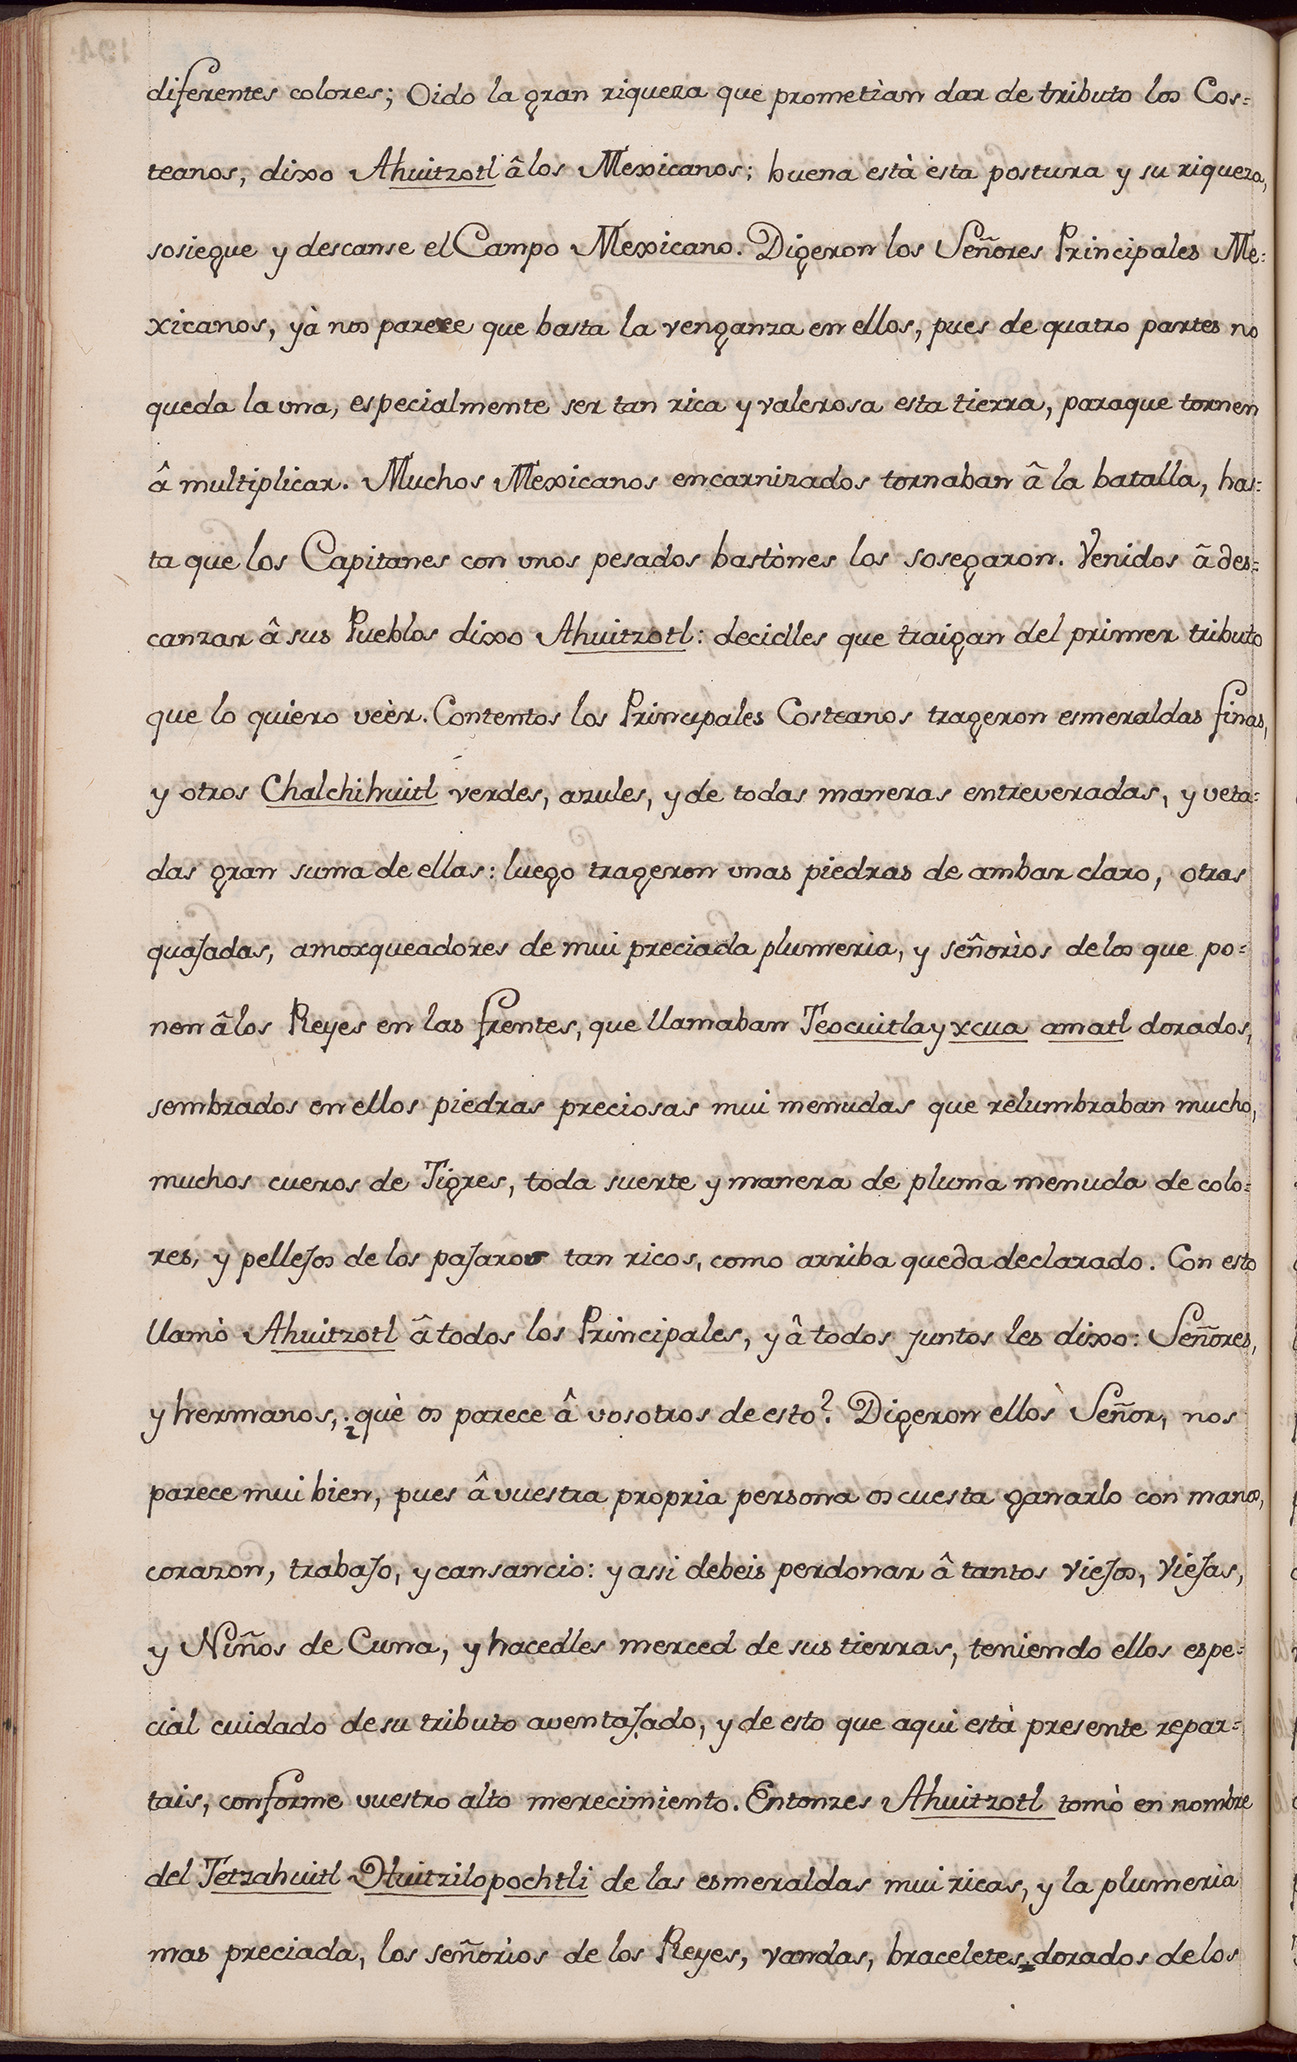 diferentes colores; Oido la gran riqueza que prometìan dar de tributo los Cos=
teanos, dixo Ahuitzotl â los Mexicanos; buena està esta postura y su riqueza,
sosiegue y descanse el Campo Mexicano. Digeron los Señores Principales Me=
xicanos, yà nos parece que basta la venganza en ellos, pues de quatro partes no
queda la una, especialmente ser tan rica y valerosa esta tierra, paraque tornen
â multiplicar. Muchos Mexicanos encarnizados tornaban â la batalla, has=
ta que los Capitanes con unos pesados bastònes los sosegaron. Venidos â des=
canzar â sus Pueblos dixo Ahuitzotl: decidles que traigan del primer tributo
que lo quiero veèr. Contentos los Principales Costeanos trageron esmeraldas finas,
y otros Chalchihuitl verdes, azules, y de todas maneras entreveradas, y veta=
das gran suma de ellas: luego trageron unas piedras de ambar claro, otras
quajadas, amoxqueadores de mui preciada plumeria, y señorìos de los que po=
nen â los Reyes en las frentes, que llamaban Teocuitlayxcua amatl dorados,
sembrados en ellos piedras preciosas mui menudas que relumbraban mucho,
muchos cueros de Tigres, toda suerte y manera de pluma menuda de colo=
res, y pellejos de los pajaros tan ricos, como arriba queda declarado. Con esto
llamò Ahuitzotl â todos los Principales, y â todos juntos les dixo: Señores,
y hermanos, ¿què os parece â vosotros de esto? Digeron ellos Señor, nos
parece mui bien, pues â vuestra propria persona os cuesta ganarlo con manos,
corazon, trabajo, y cansancio: y assi debeis perdonar â tantos Viejos, Viejas,
y Niños de Cuna, y hacedles merced de sus tierras, teniendo ellos espe=
cial cuidado de su tributo aventajado, y de esto que aqui està presente repar=
tais, conforme vuestro alto merecimiento. Entonzes Ahuitzotl tomò en nombre
del Tetzahuitl Huitzilopochtli de las esmeraldas mui ricas, y la plumeria
mas preciada, los señorìos de los Reyes, vandas, braceletes dorados de los